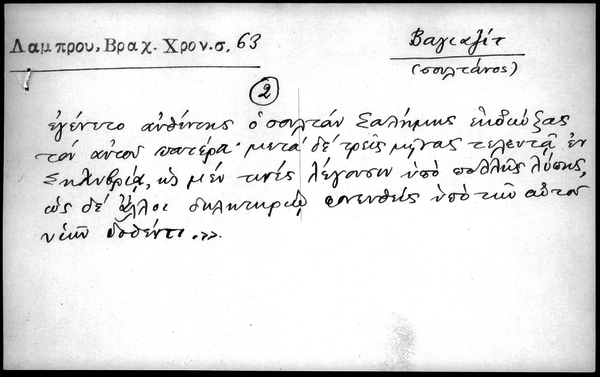 Λαμπρου, Βραχ. Χρον. σ. 63
Βαγιαζίτ
(σουλτάνος)
2
ἐγένετο αὐθέντης ὁ σουλτάν Σαλήμης ἐκδιώξας
τόν αὐτοῦ πατέρα· μετά δέ τρεῖς μῆνας τελευτᾶ ἐν
Σηλυβρίᾳ, ὡς μέν τινές λέγουσιν ὑπό πολλῆς λύπης,
ὡς δέ ἄλλοι δηλητηρίῳ φονευθείς ὑπό τῶν αὐτοῦ
υἱῶν δοθέντι.»